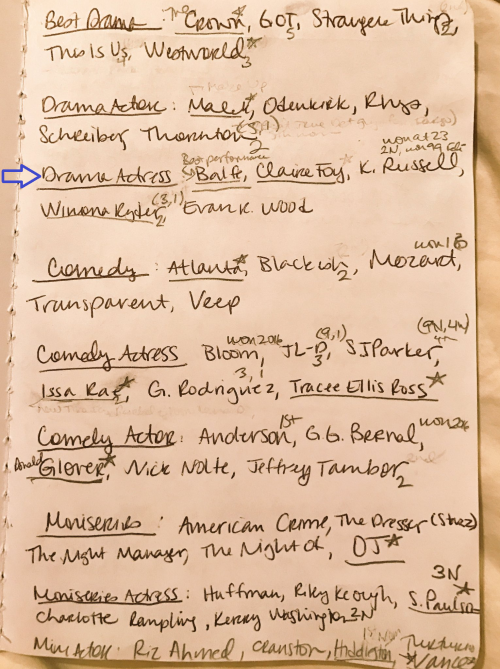 Best Drama: The Crown, GOT, Stranger Things,
5 2
This is Us, Westworld
4 3
Drama Actor: Malek, Odenkirk, Rhys,
Schreiber, Thornton (5,1)
2
won at 23
Best performance 2N, won 99
Drama Actress: Balfe, Claire Foy, K. Russell,
Winona Ryder, (3,1) Evan R. Wood
2
won 13
Comedy: Atlanta, Blackish, Mozart,
2
Transparent, Veep
won 2016 (9,1) (9N, 4W)
Comedy Actress Bloom, JL-D, SJParker,
3, 1 3
Issa Rae, G. Rodriguez, Tracee Ellis Ross
1st won 2016
Comedy Actor: Anderson, G.G. Bernal,
Donald
Glover, Nick Nolte, Jeffrey Tambor
2
Miniseries: American Crime, The Dresser (Starz)
The Night Manager, The Night of, OJ
3N
Miniseries Actress: Huffman, Riley Keough, S. Paulson
Charlotte Rampling, Kerry Washington 2N
Mini Actor: Riz Ahmed, Cranston, Hiddleston,